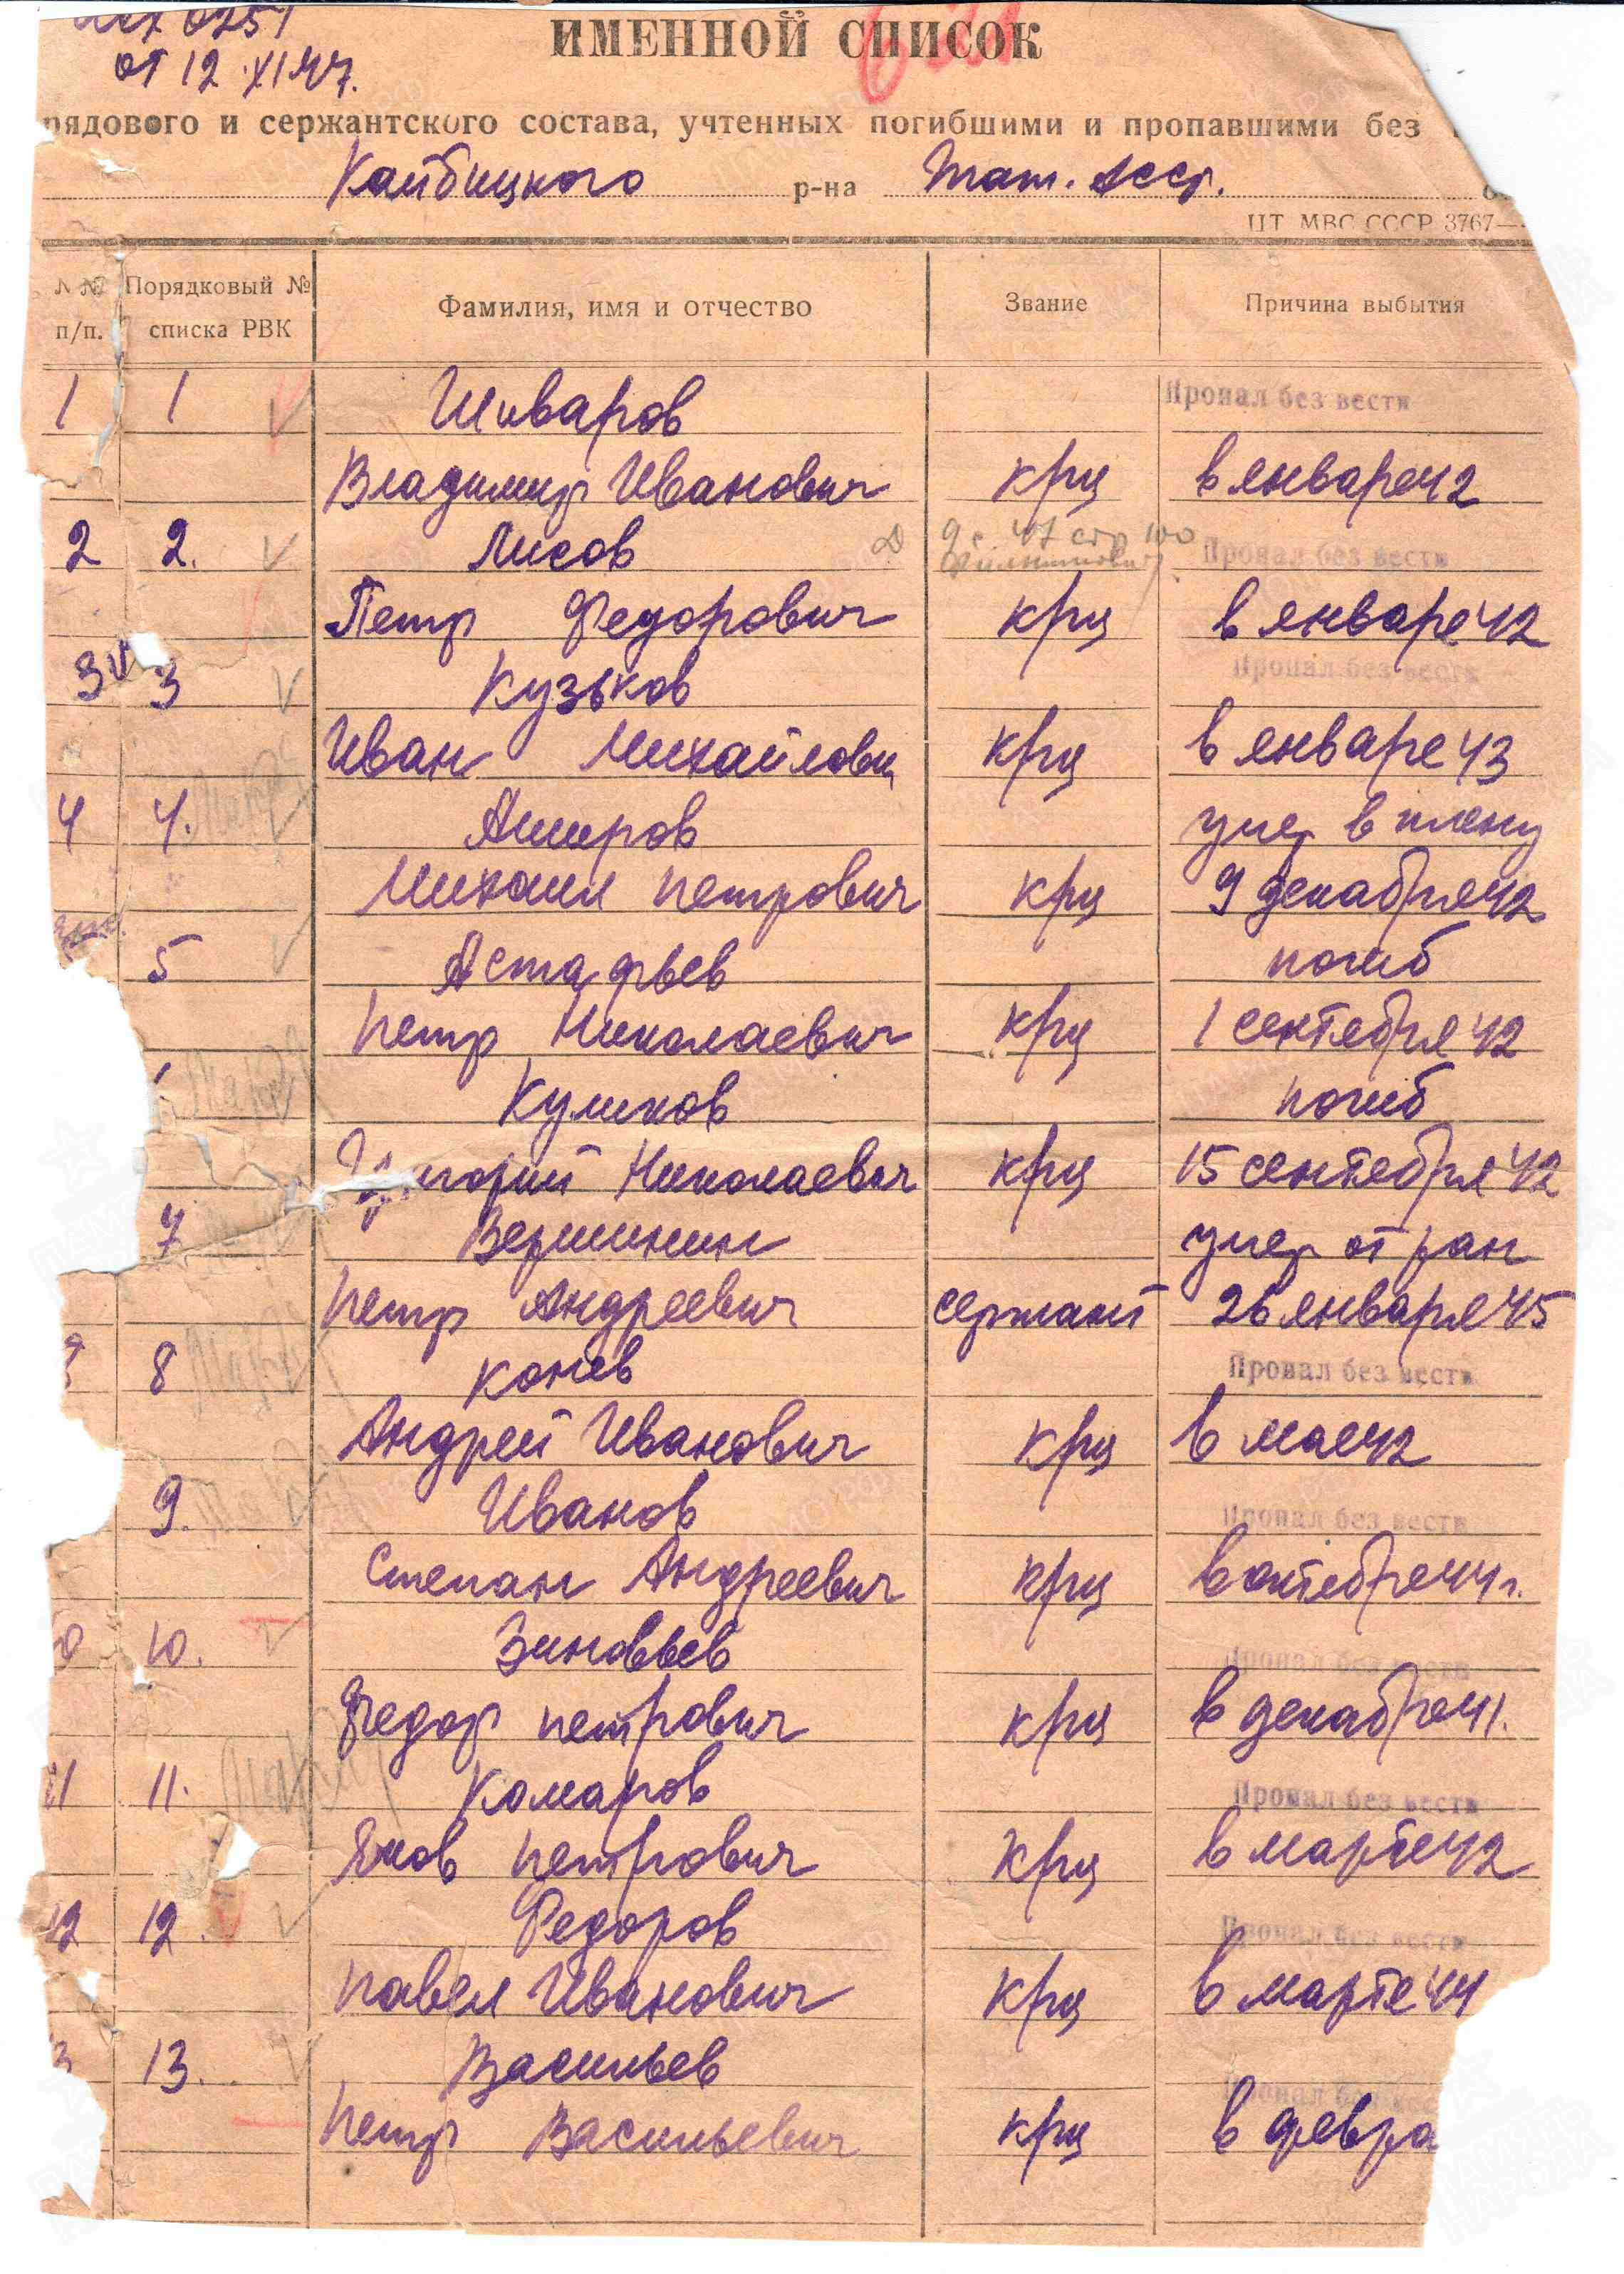 0251
от 12.XI.47.
ИМЕННОЙ СПИСОК
рядового и сержантского состава, учтенных погибшими и пропавшими без
Кайбицкого р-на Тат. Асср.
ЦТ МВС СССР 3767—
№№ п/п. Порядковый № списка РВК Фамилия, имя и отчество Звание Причина выбытия
1 1 Шиваров Пропал без вести
Владимир Иванович крц в январе 42
2 2. Лисов 47 стр 100 Пропал без вести
Петр Федорович крц в январе 42
3 3 Кузьков Пропал без вести
Иван Михайлович крц в январе 43
4 4. Амиров умер в плену
Михаил Петрович крц 9 декабря 42
5 Астафьев погиб
Петр Николаевич крц 1 сентебря 42
Куликов погиб
Григорий Николаевич крц 15 сентебря 42
7 Вершинин умер от ран
Петр Андреевич сержант 26 января 45
8 8 Конев Пропал без вести
Андрей Иванович крц в мае 42
9. Иванов Пропал без вести
Степан Андреевич крц в октебре 44 г.
10. Зиновьев Пропал без вести
Федор Петрович крц в декабре 41.
11 11. Комаров Пропал без вести
Яков Петрович крц в марте 42
12 12. Федоров Пропал без вести
Павел Иванович крц в марте 44
3 13. Васильев Пропал без вес
Петр Васильевич крц в февра